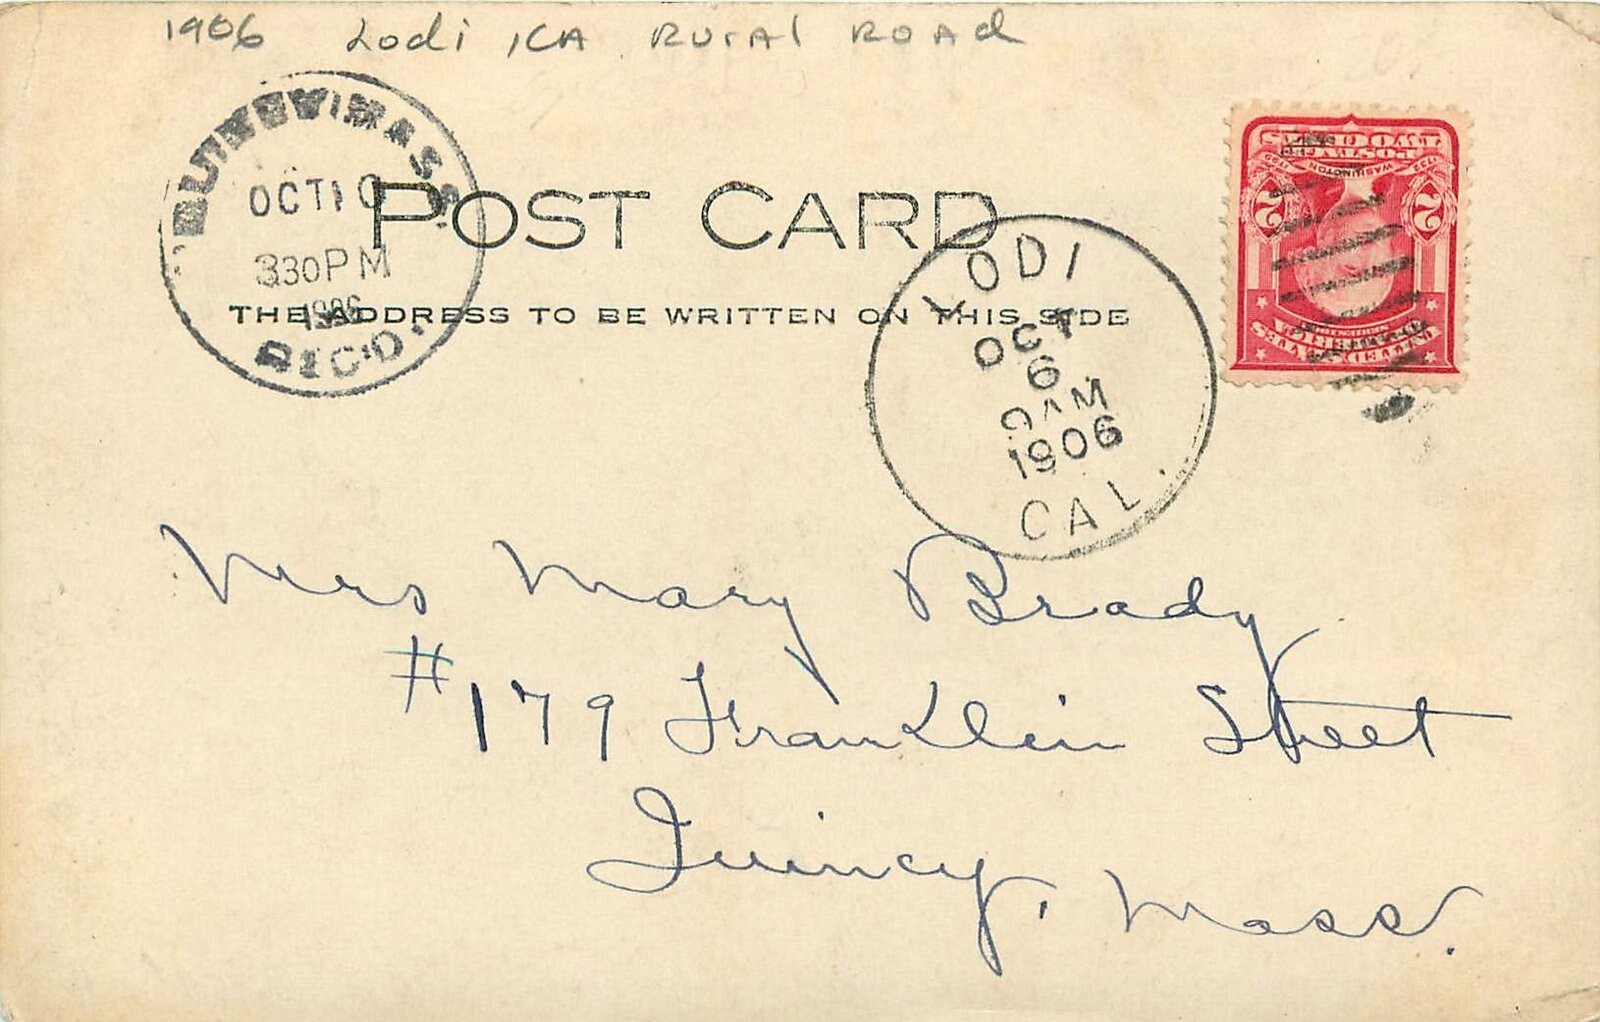 1906 Lodi, CA Rural Road
MASS.
OCT 10
330PM
1906
REC'D.
POST CARD
THE ADDRESS TO BE WRITTEN ON THIS SIDE
LODI
OCT
6
AM
1906
CAL.
TWO CENTS
POSTAGE
1732 WASHINGTON 1799
2 2
SERIES 1902
UNITED STATES OF AMERICA
Mrs Mary Brady
#179 Franklin Street
Quincy, Mass.